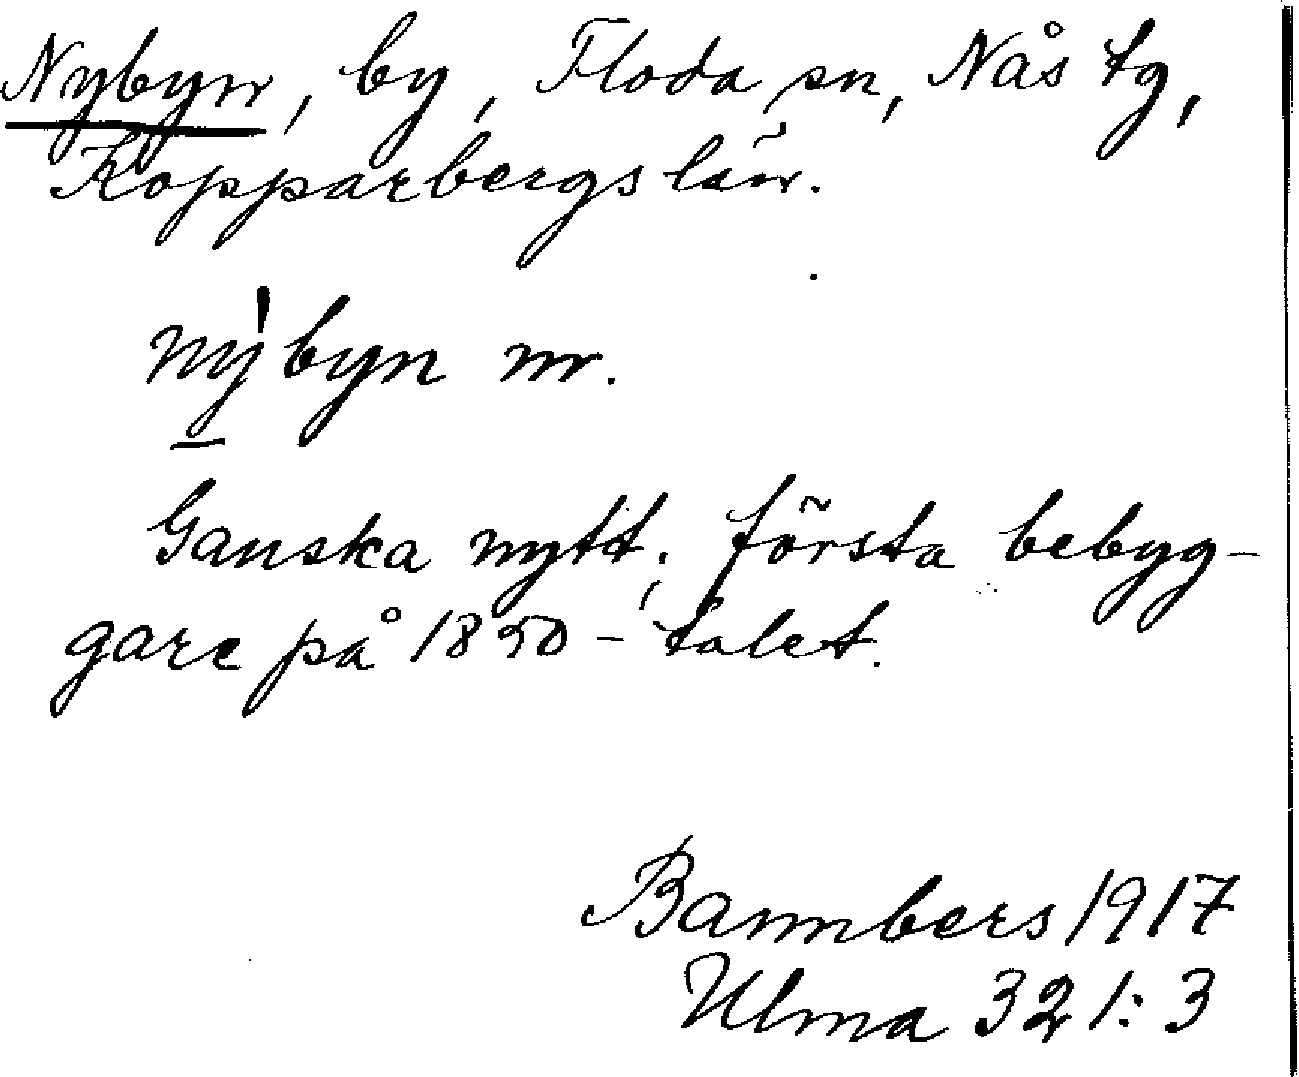 Nybyn, by, Floda sn, Nås tg,
Kopparbergs län.
nỳ̠byn m.
Ganska nytt; första bebyg-
gare på 1850-talet.
Bannbers 1917
Ulma 321:3